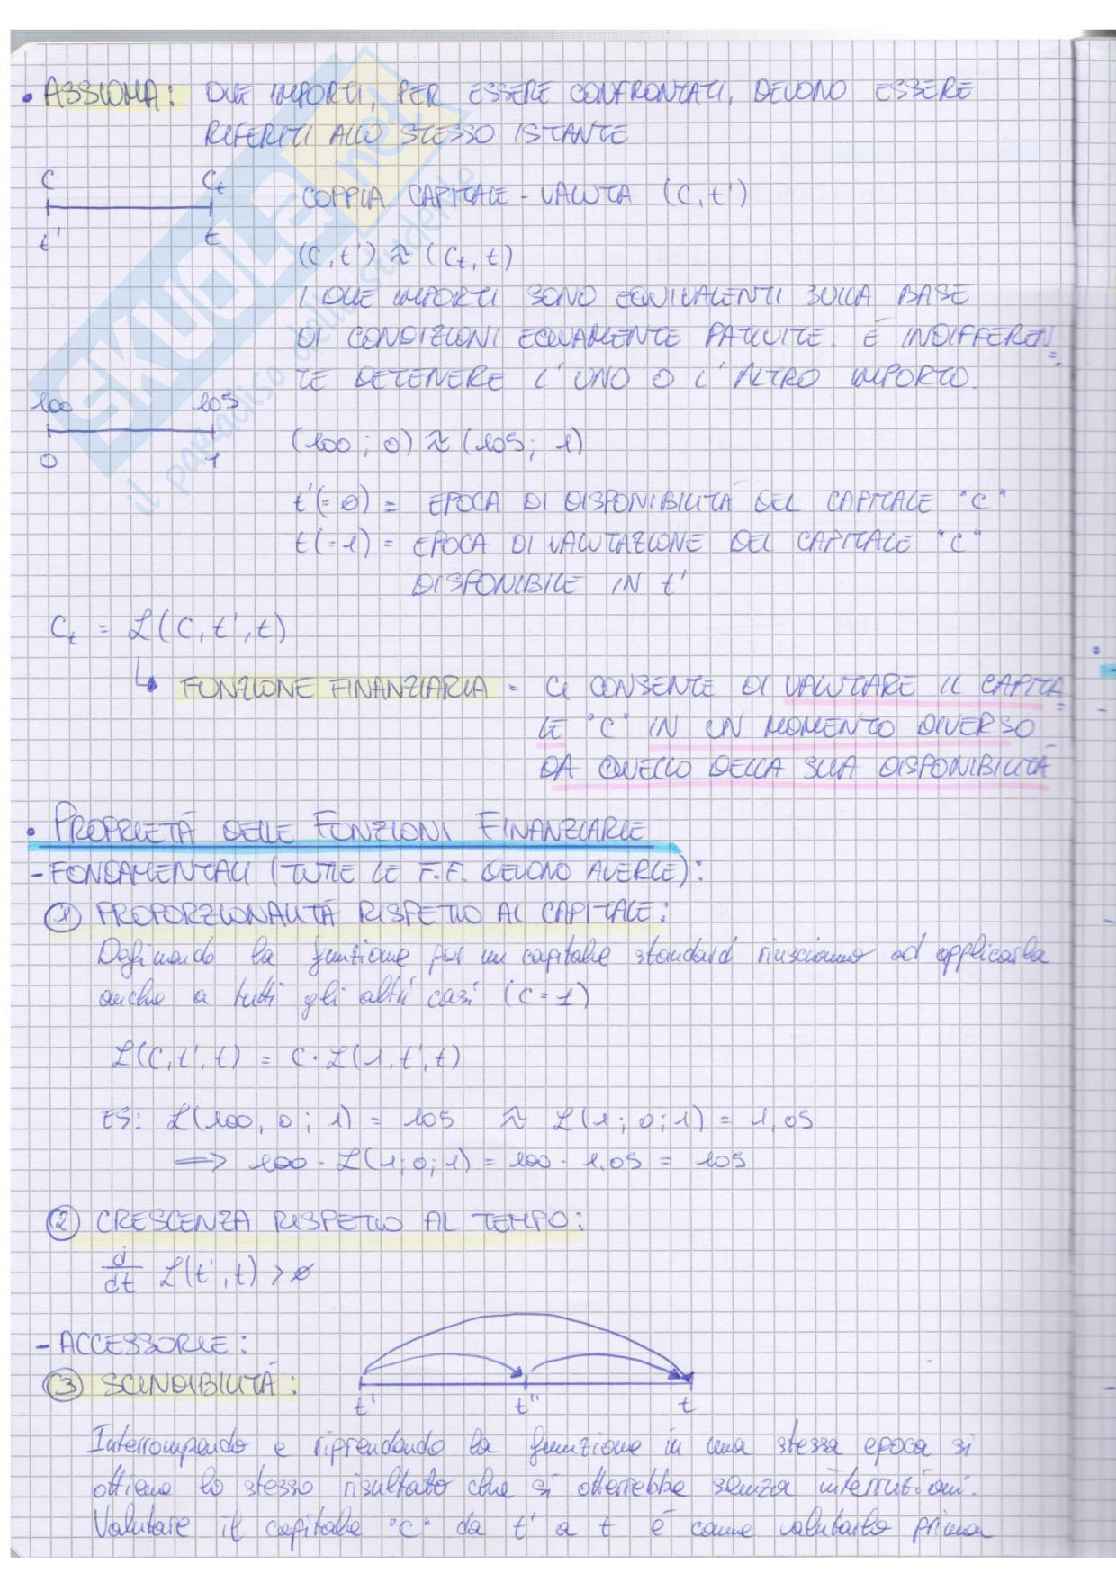 • ASSIOMA: DUE IMPORTI, PER ESSERE CONFRONTATI, DEVONO ESSERE
RIFERITI ALLO STESSO ISTANTE
C Ct
t' t
COPPIA CAPITALE-VALUTA (C,t')
(C,t') ≈ (Ct,t)
I DUE IMPORTI SONO EQUIVALENTI SULLA BASE
DI CONDIZIONI EQUAMENTE PATTUITE. È INDIFFEREN=
TE DETENERE L'UNO O L'ALTRO IMPORTO.
100 105
0 1
(100; 0) ≈ (105; 1)
t'(=0) = EPOCA DI DISPONIBILITÀ DEL CAPITALE "C"
t(=1) = EPOCA DI VALUTAZIONE DEL CAPITALE "C"
DISPONIBILE IN t'
Ct = ℒ(C,t',t)
↳ FUNZIONE FINANZIARIA = CI CONSENTE DI VALUTARE IL CAPITA=
LE "C" IN UN MOMENTO DIVERSO
DA QUELLO DELLA SUA DISPONIBILITÀ
• PROPRIETÀ DELLE FUNZIONI FINANZIARIE
- FONDAMENTALI (TUTTE LE F.F. DEVONO AVERLE):
① PROPORZIONALITÀ RISPETTO AL CAPITALE:
Definendo la funzione per un capitale standard riusciamo ad applicarla
anche a tutti gli altri casi (C=1)
ℒ(C,t',t) = C·ℒ(1,t',t)
ES: ℒ(100, 0; 1) = 105 ≈ ℒ(1; 0; 1) = 1,05
⟹ 100·ℒ(1;0;1) = 100·1,05 = 105
② CRESCENZA RISPETTO AL TEMPO:
d/dt ℒ(t',t) > 0
- ACCESSORIE:
③ SCINDIBILITÀ:
t' t" t
Interrompendo e riprendendo la funzione in una stessa epoca si
ottiene lo stesso risultato che si otterrebbe senza interruzioni.
Valutare il capitale "C" da t' a t è come valutarlo prima
SKUOLA.net
il paradiso dello studente